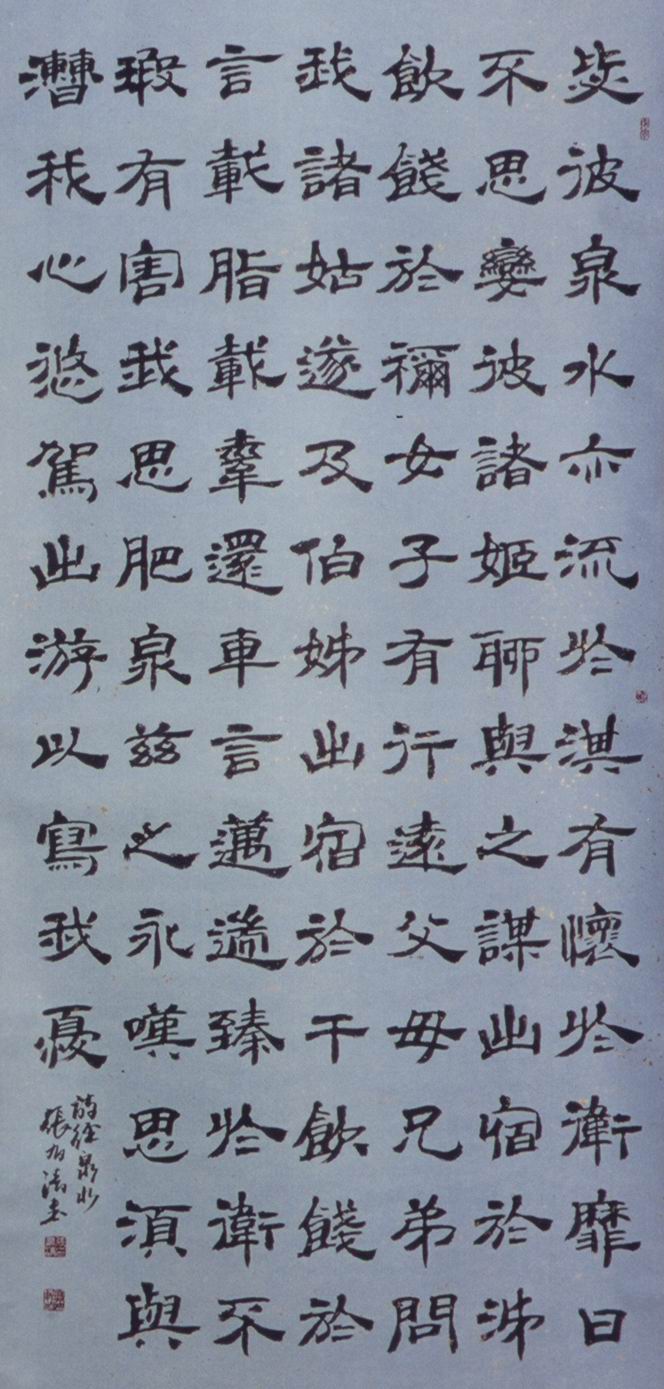 毖彼泉水亦流於淇有懷於衛靡日
不思孌彼諸姬聊與之謀出宿於泲
飲餞於禰女子有行遠父母兄弟問
我諸姑遂及伯姊出宿於干飲餞於
言載脂載舝還車言邁遄臻於衛不
瑕有害我思肥泉茲之永嘆思須與
漕我心悠駕出游以寫我憂
詩經泉水
張有清書